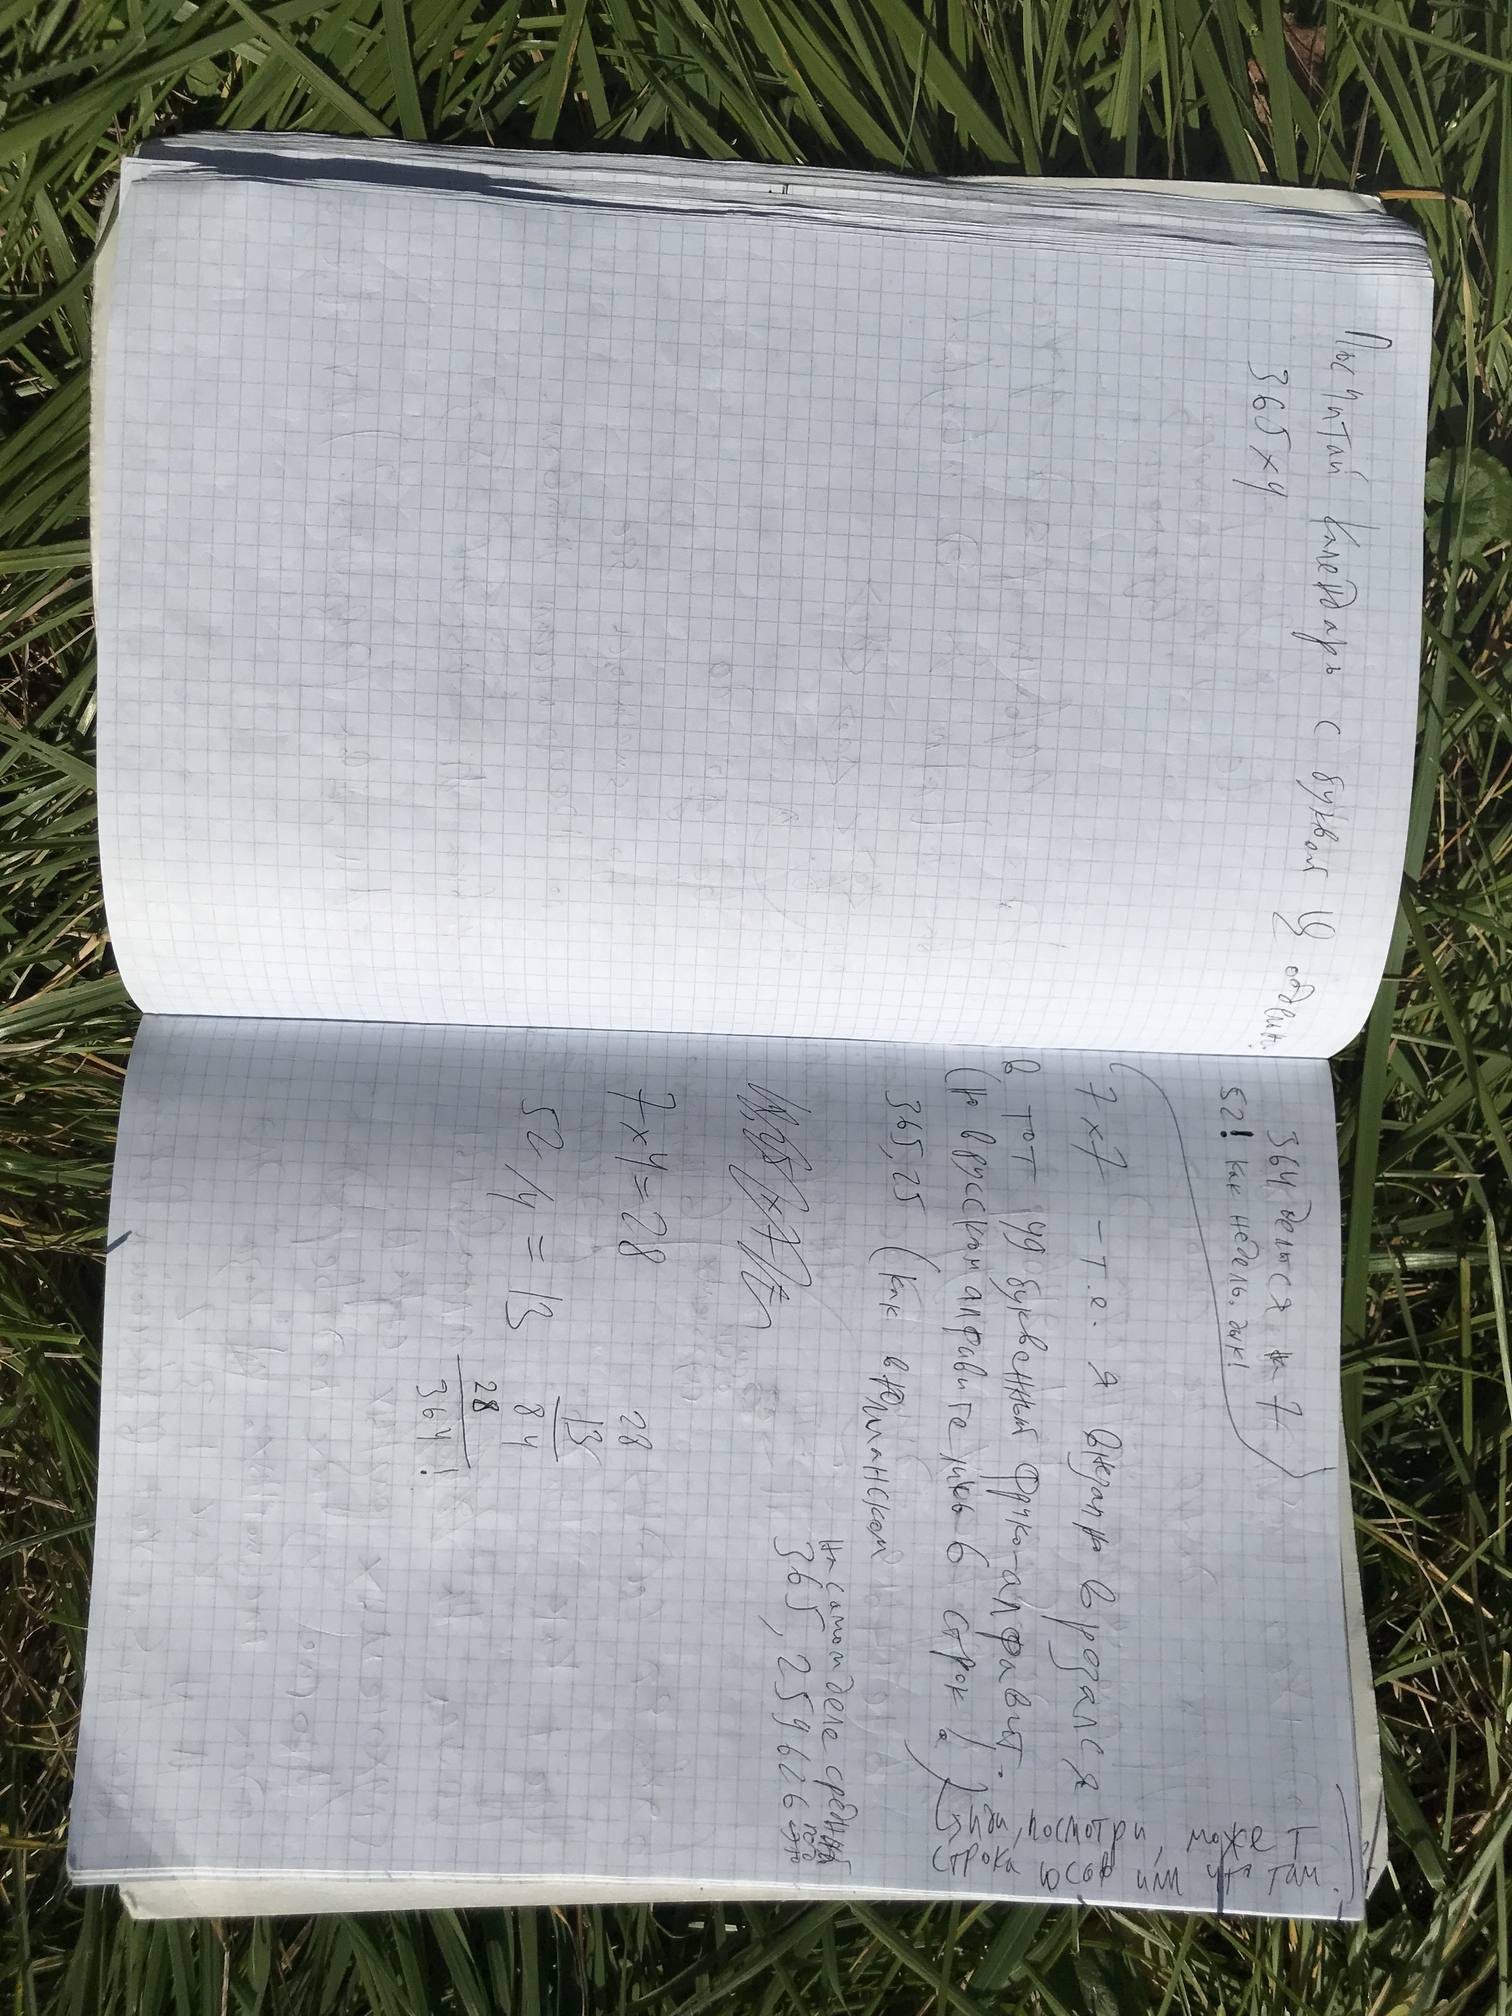 Посчитай календарь с буквой Ѱ отдельн.
365 x 4
364 делится на 7
52! как недель, дык!
7 x 7 - т.е. я внезапно врезался
в тот 49 буквенный фрико-алфавит.
(Но в русском алфавите лишь 6 строк!
иди, посмотри, может
строка юсов или что там.
365,25 (как в Юлианском
На самом деле средний
год
365,259626
7x4=28
52/4 = 13
28
13
84
28
364!